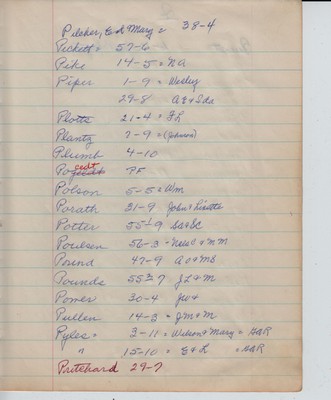 Pilcher, E & Mary = 38-4
Pickett = 57-6
Pike 14-5 = NA
Piper 1-9 = Wesley
29-8 A E & Ida
Plotts 21-4 = F L
Plantz 7-9 = (Johnson)
Plumb 4-10
PF
Polson 5-5 = Wm
Porath 31-9 John & Lisette
Potter 55-9 Sa & EC
Poulsen 56-3 = Nels C & M M
Pound 47-9 A O & MB
Pounds 55-7 J L & M
Power 30-4
Pullen 14-3 = J M & M
Pyles = 3-11 = Wilson & Mary = A&R
" 15-10 = E & L = A&R
Pritchard 29-7